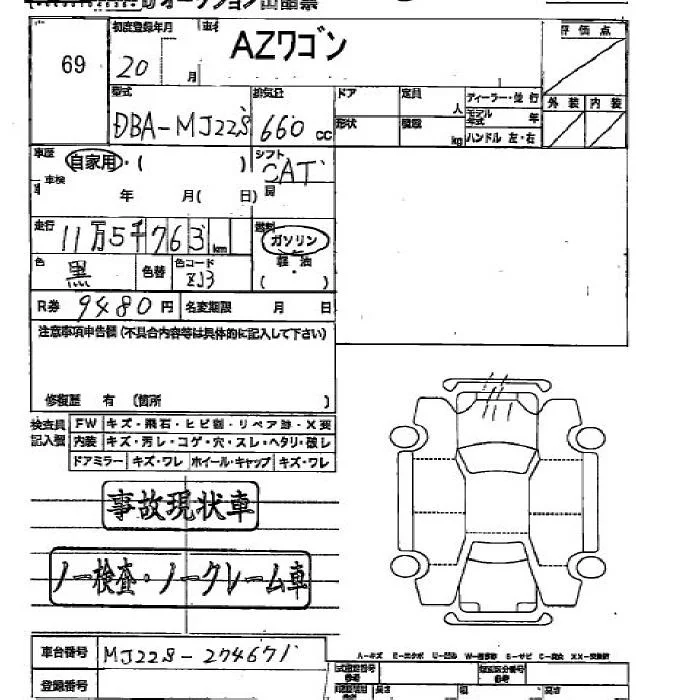 オークション出品票
69
初度登録年月 車名 評価点
20 月 AZワゴン
型式 排気量 ドア 定員 人 ディーラー・並行 外装 内装
DBA-MJ22S 660cc 形状 積載 kg モデル年式 年
ハンドル 左・右
車歴 自家用・( ) シフト CAT
車検 年 月( 日)
走行 11万5千763km 燃料 ガソリン
軽油
( )
色 黒 色替 色コード ZJ3
R券 9480円 名変期限 月 日
注意事項申告欄(不具合内容等は具体的に記入して下さい)
修復歴 有 〔箇所 〕
検査員記入欄 FW キズ・飛石・ヒビ割・リペア跡・X要
内装 キズ・汚レ・コゲ・穴・スレ・ヘタリ・破レ
ドアミラー キズ・ワレ ホイール・キャップ キズ・ワレ
事故現状車
ノー検査・ノークレーム車
車台番号 MJ22S-274671
登録番号
A-キズ E-エクボ U-凹み W-補修跡 S-サビ C-腐食 XX-交換済
長さ 幅 高さ